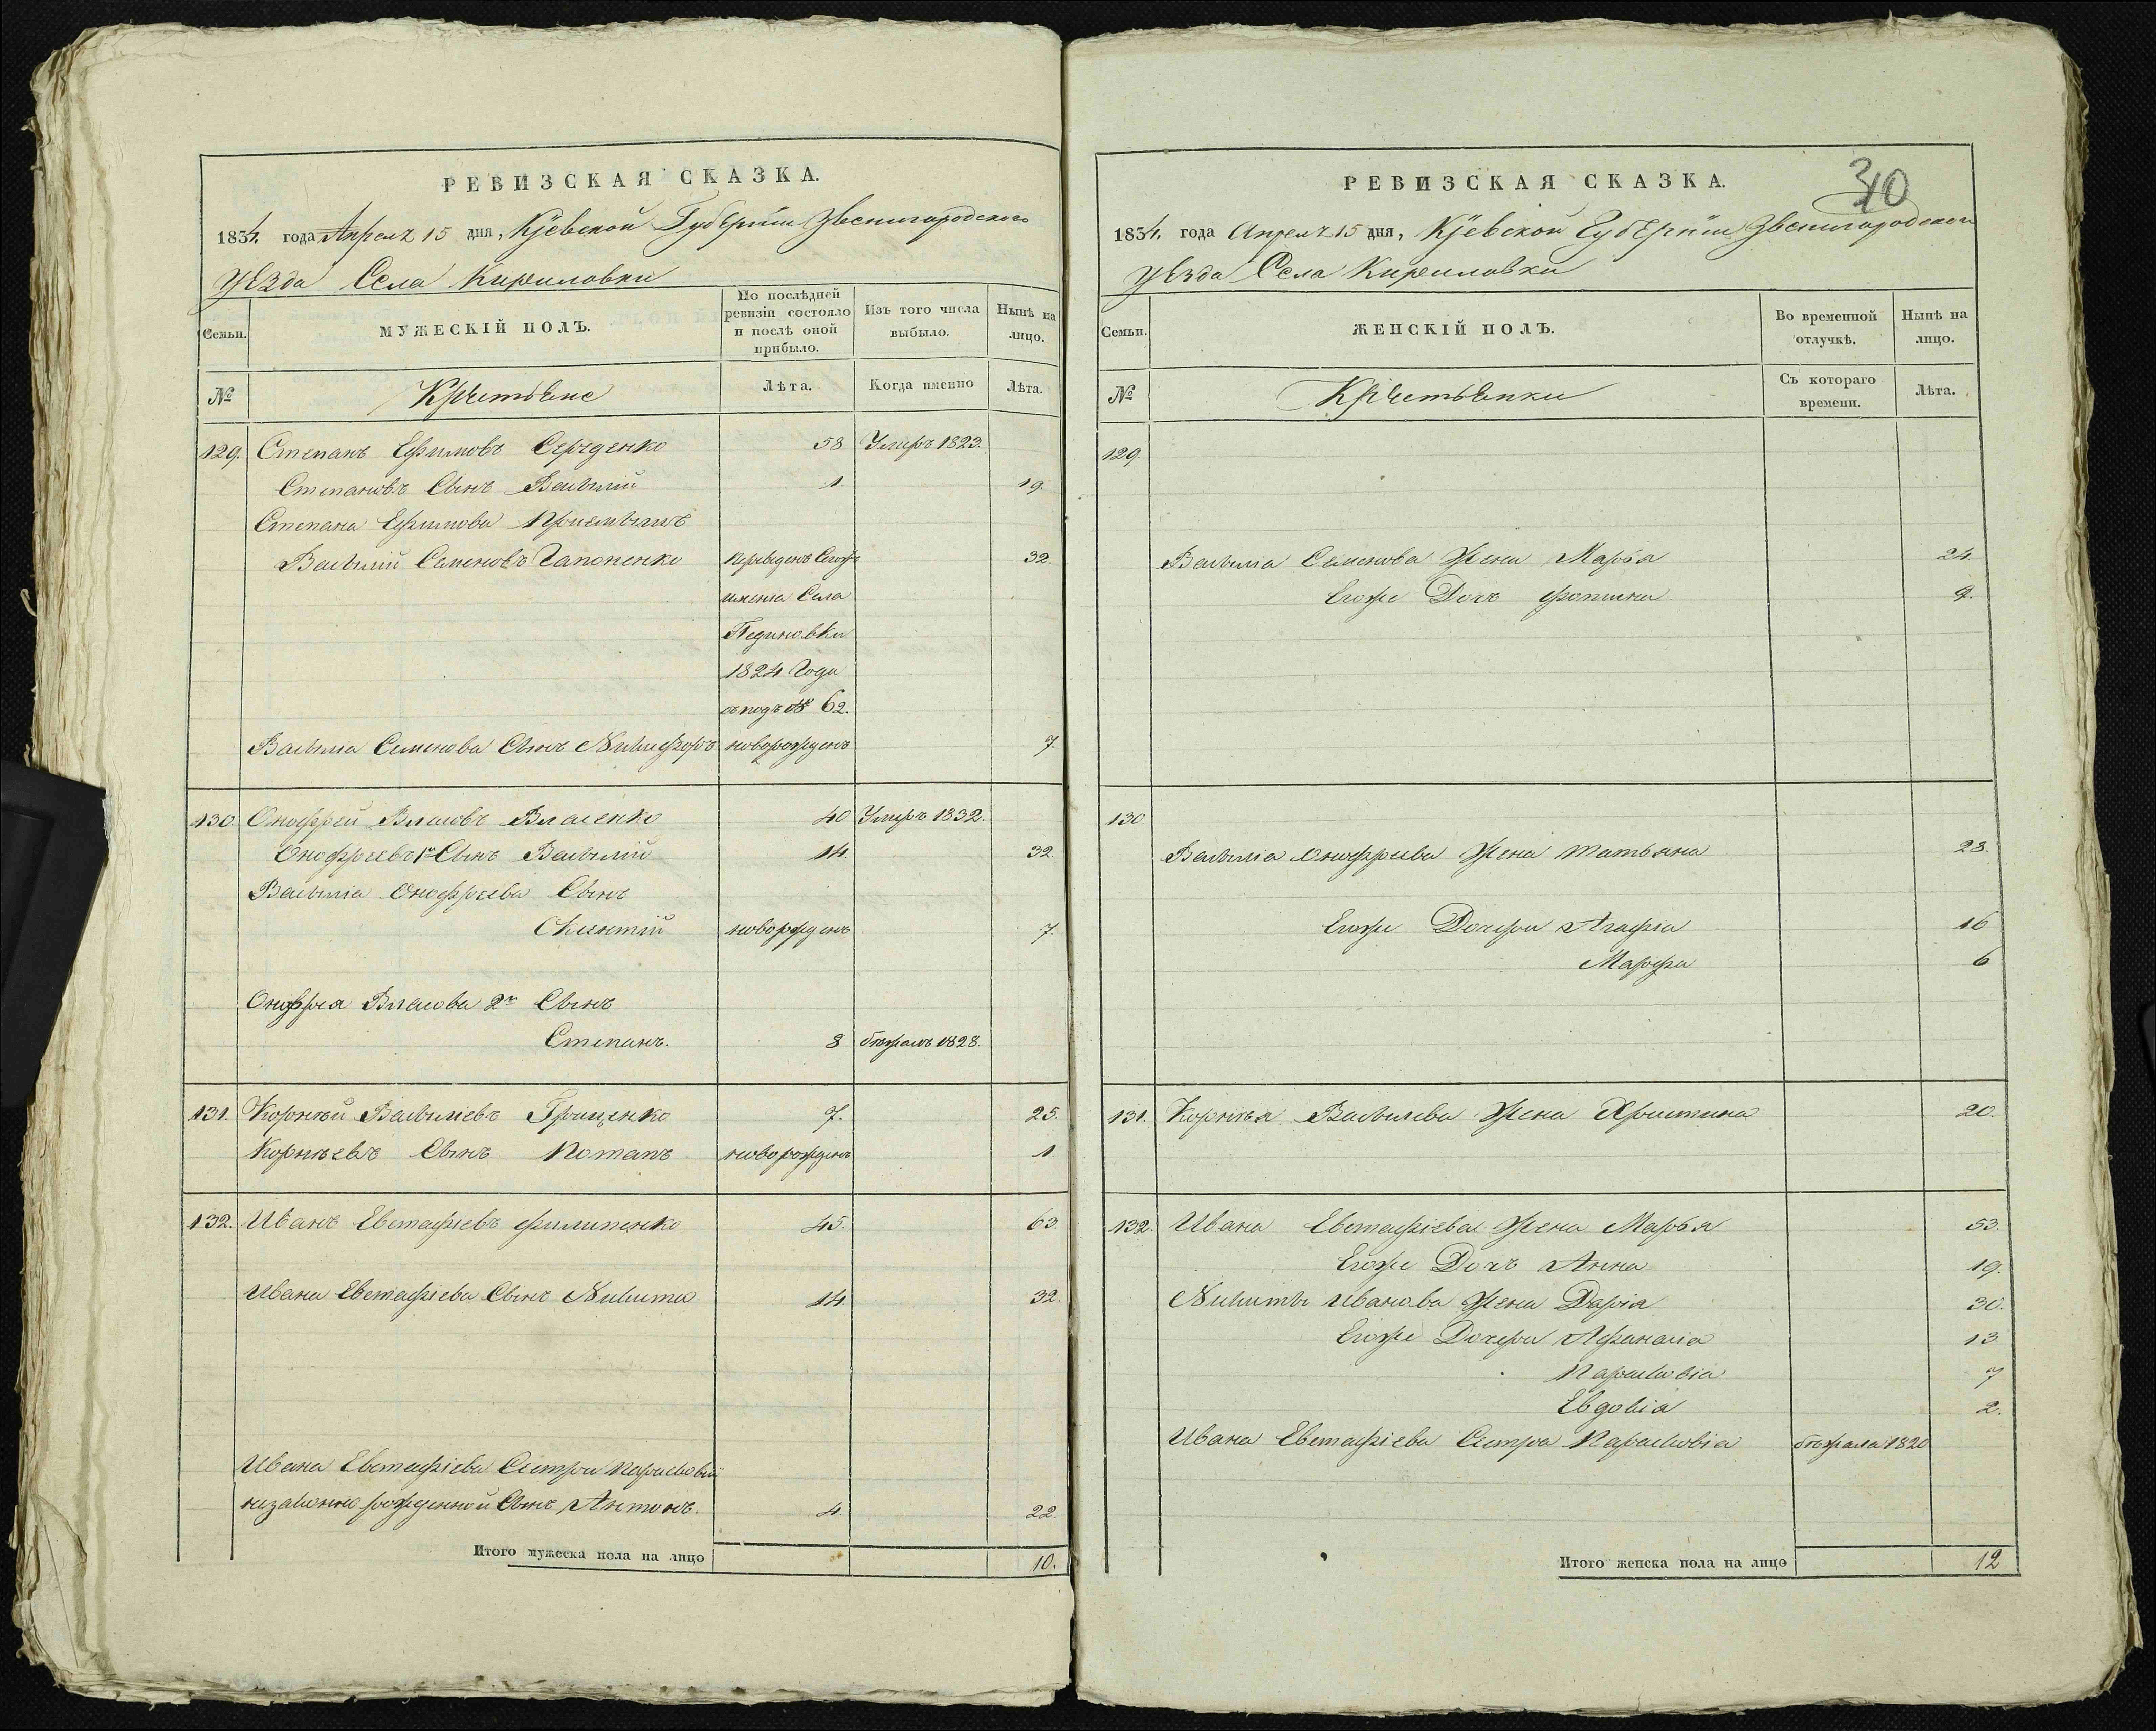 РЕВИЗСКАЯ СКАЗКА.
1834. года Апреля 15 дня, Кіевской Губерніи Звенигородского
уезда Села Кириловки
Семьи. МУЖЕСКІЙ ПОЛЪ. По послѣдней ревизіи состояло и послѣ оной прибыло. Изъ того числа выбыло. Нынѣ на лицо.
№ Крестьяне Лѣта. Когда именно Лѣта.
129. Степанъ Ефимовъ Середенко 58 Умеръ 1823.
Степановъ Сынъ Василій 1. 19.
Степана Ефимова Приемышъ
Василій Семеновъ Гапоненко переведенъ Сегожъ 32.
имения Села
Пединовки
1824 Года
съ подъ № 62.
Василія Семенова Сынъ Никифоръ новорожденъ 7.
130. Онофрей Власовъ Власенко 40 Умеръ 1832.
Онофреевъ 1й Сынъ Василій 14. 32
Василія Онофреева Сынъ
новорожденъ 7.
Онофрея Власова 2й Сынъ
Степанъ. 8 бежалъ 1828.
131. Корнѣй Васильевъ Грищенко 7. 25.
Корнѣевъ Сынъ Потапъ новорожденъ 1.
132. Иванъ Евстафіевъ Филипенко 45. 63.
Ивана Евстафіева Сынъ Никита 14. 32.
Ивана Евстафіева Сестры Парасковіи
незаконно рожденной Сынъ Антонъ. 4. 22.
Итого мужеска пола на лицо 10.
РЕВИЗСКАЯ СКАЗКА.
30
1834. года Апреля 15 дня, Кіевской Губерніи Звенигородского
уезда Села Кириловки
Семьи. ЖЕНСКІЙ ПОЛЪ. Во временной отлучкѣ. Нынѣ на лицо.
№ Крестьянки Съ котораго времени. Лѣта.
129.
Василія Семенова Жена Марья 24.
Егоже Дочь Фотина 9.
130
Василія Онофреева Жена Татьяна 28.
Егоже Дочери Агафія 16
Марфа 6
131. Корнѣя Васильева Жена Христина 20.
132. Ивана Евстафіева Жена Марья 53.
Егоже Дочь Анна 19.
Никиты Иванова Жена Дарія 30.
Егоже Дочери Афанасія 13
Парасковія 7
Евдокія 2.
Ивана Евстафіева Сестра Парасковія бежала 1820
Итого женска пола на лицо 12